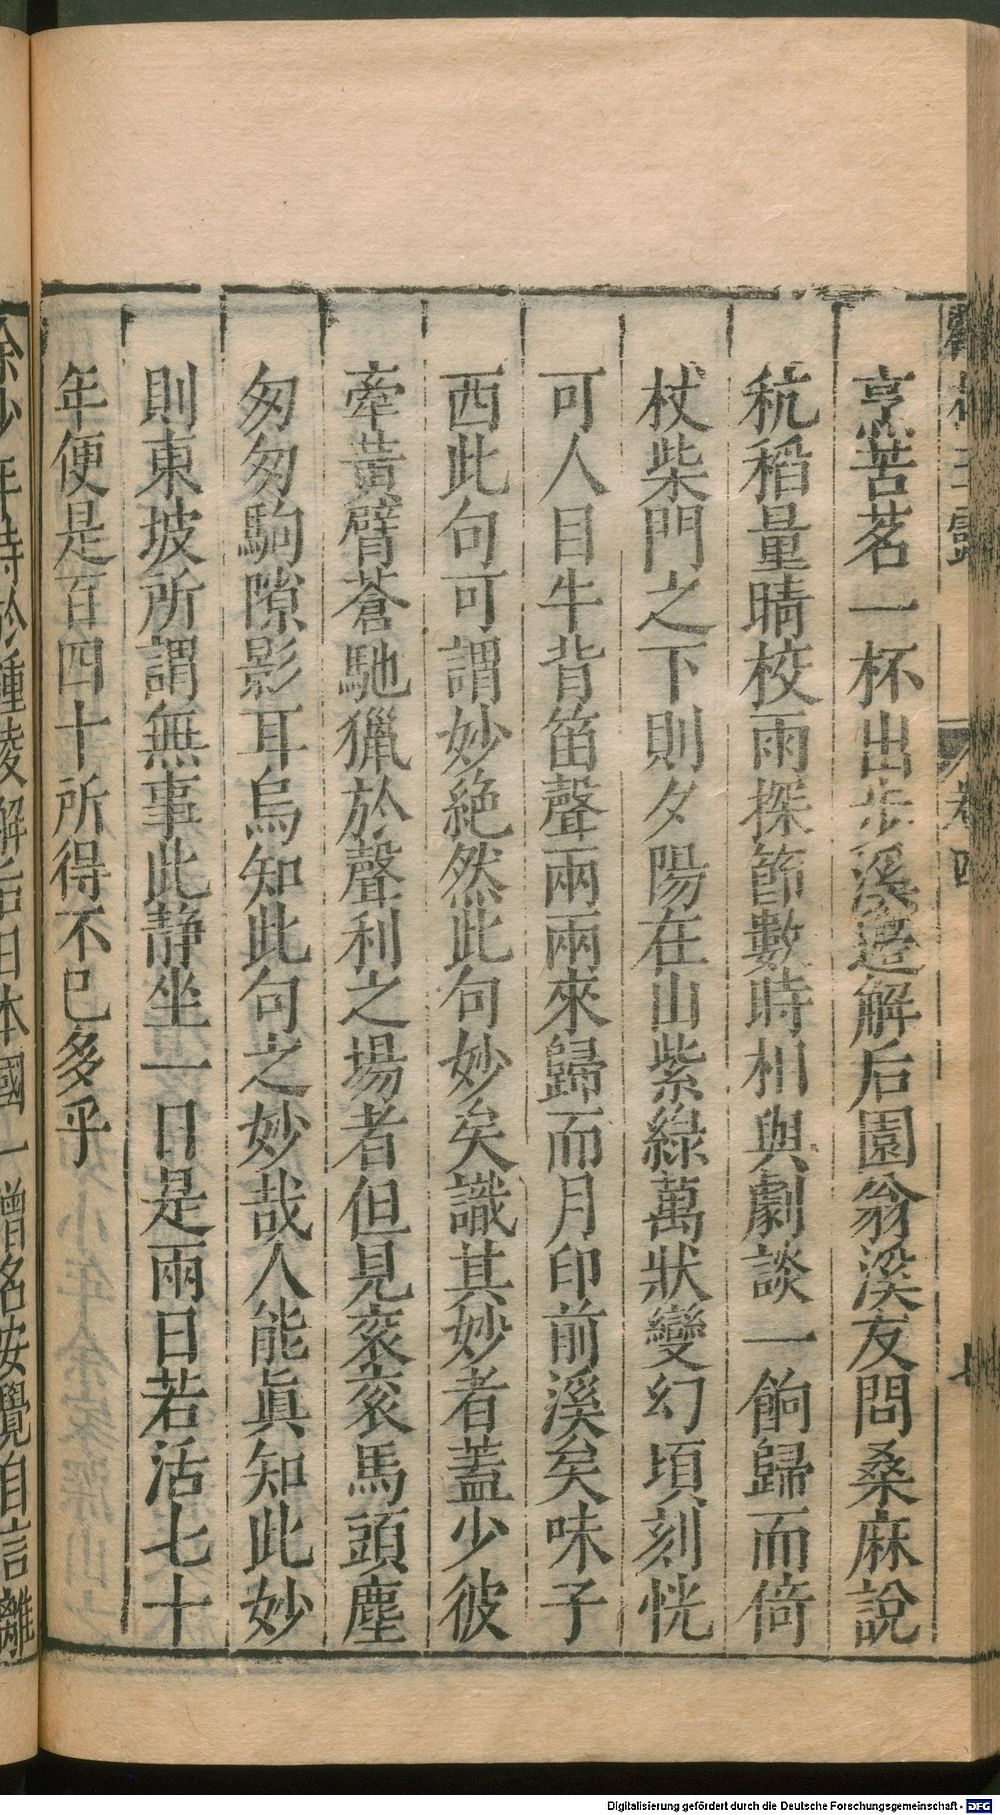 鶴林玉露 卷四 七
烹苦茗一杯出步溪邊解后園翁溪友問桑麻說
秔稻量晴校雨探節數時相與劇談一餉歸而倚
杖柴門之下則夕陽在山紫綠萬狀變幻頃刻恍
可人目牛背笛聲兩兩來歸而月印前溪矣味子
西此句可謂妙絕然此句妙矣識其妙者蓋少彼
牽黃臂蒼馳獵於聲利之場者但見衮衮馬頭塵
匆匆駒隙影耳烏知此句之妙哉人能眞知此妙
則東坡所謂無事此静坐一日是兩日若活七十
年便是百四十所得不已多乎
余少年時於鍾陵邂逅日本國一僧名安覺自言離
Digitalisierung gefördert durch die Deutsche Forschungsgemeinschaft - DFG